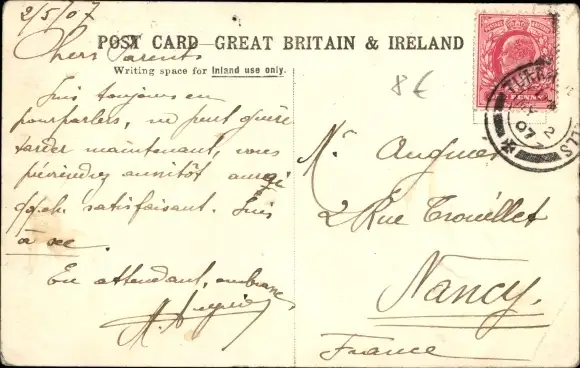 2/5/07
Chers Parents
POST CARD—GREAT BRITAIN & IRELAND
Writing space for Inland use only.
Suis toujours en
pourparlers, ne peut guère
tarder maintenant, vous
préviendrez aussitôt
satisfaisant. Suis
En attendant,
8€
PENNY
TUN
LLS
MY 2
07
Mr.
2 Rue Trouillet
Nancy.
France